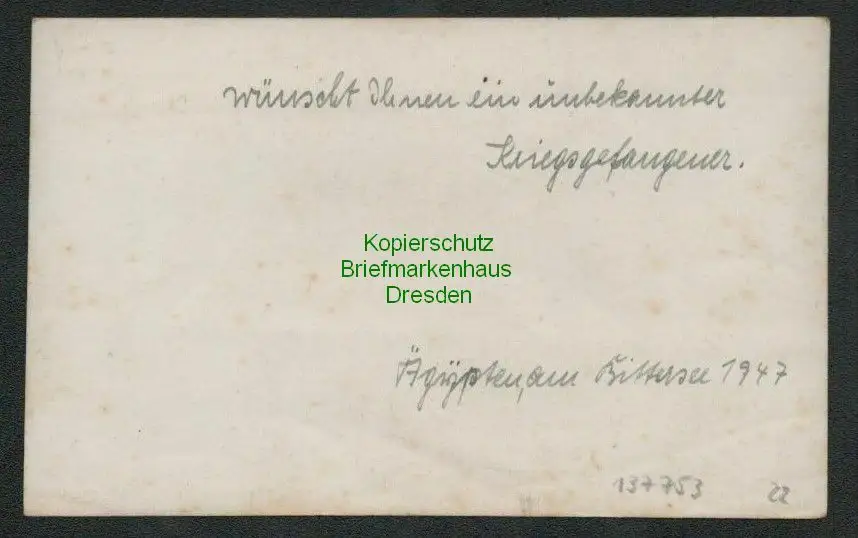 wünscht Ihnen ein unbekannter
Kriegsgefangener.
Kopierschutz
Briefmarkenhaus
Dresden
Ägypten, am Bittersee 1947
137753 22